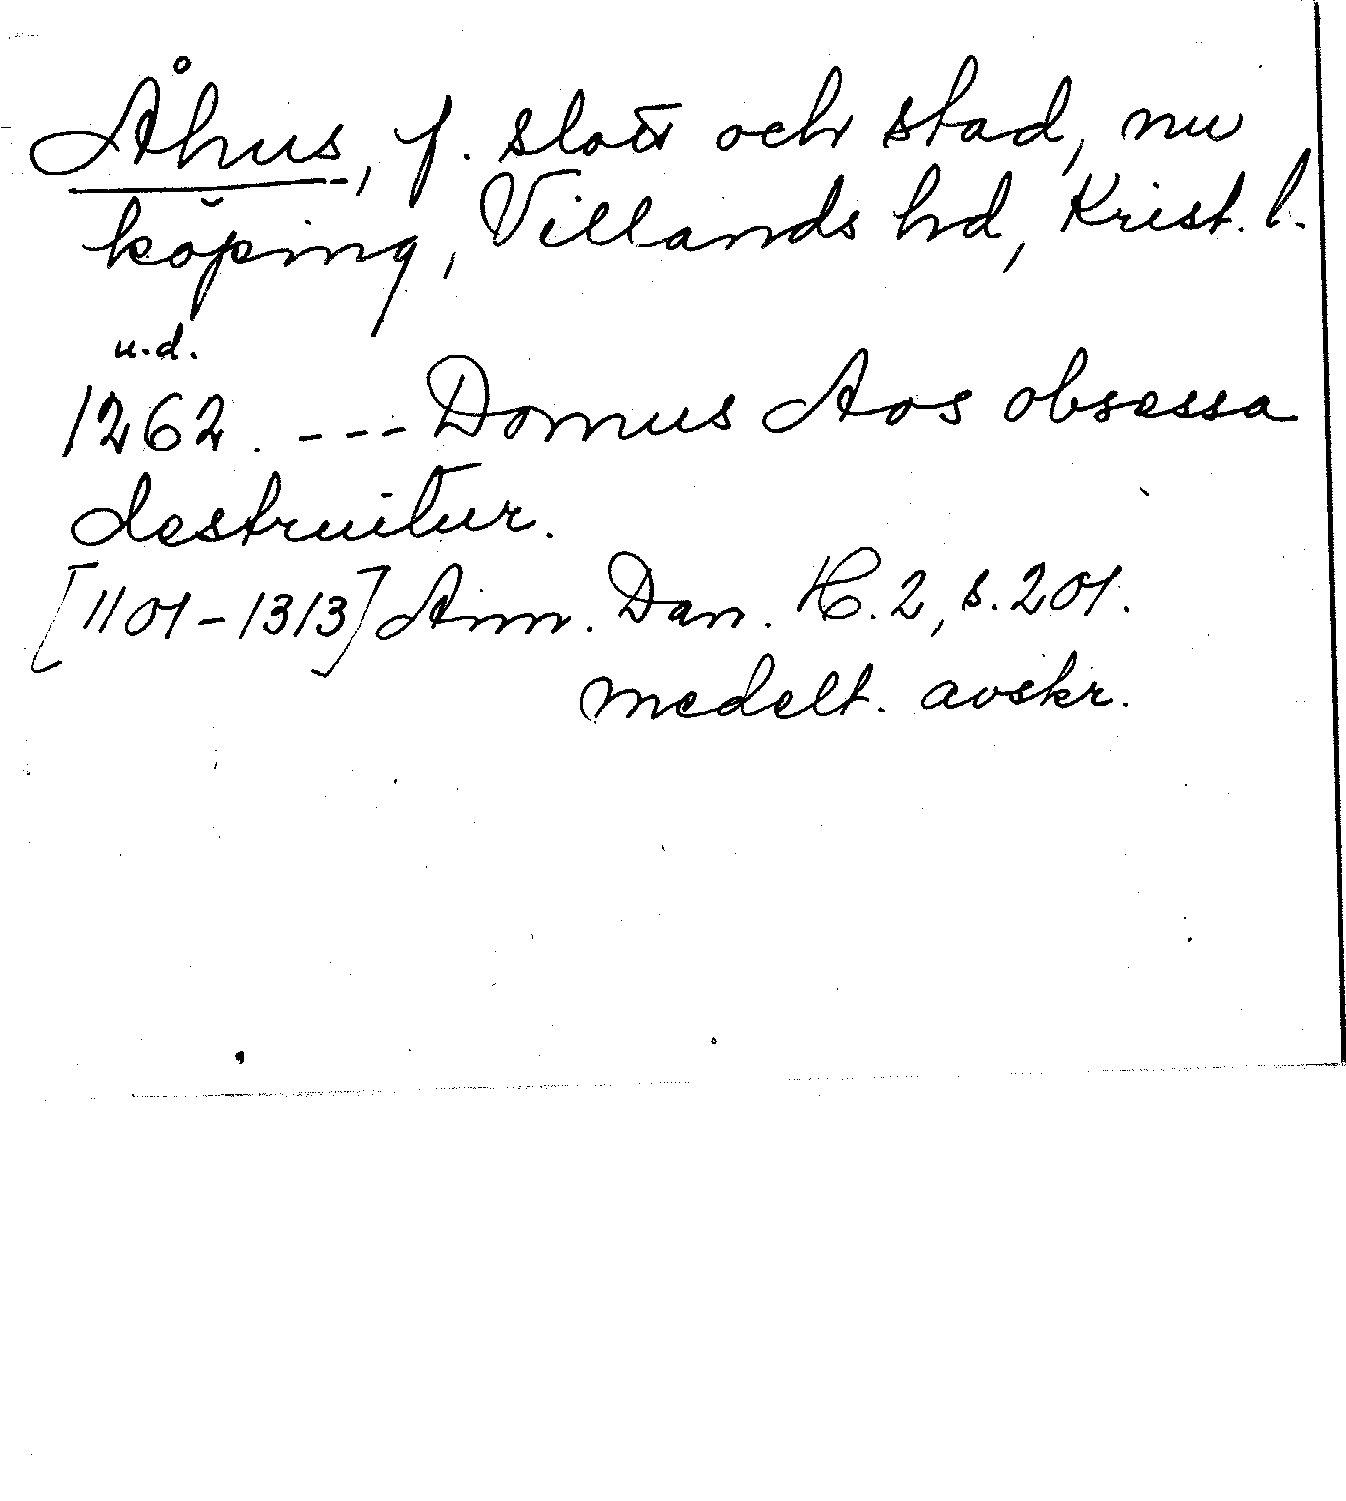 Åhus, f. slott och stad, nu
köping, Villands hd, Krist. l.
u.d.
1262. --- Domus Aos obsessa
destruitur.
[1101-1313] Ann. Dan. H. 2, s. 201.
medelt. avskr.